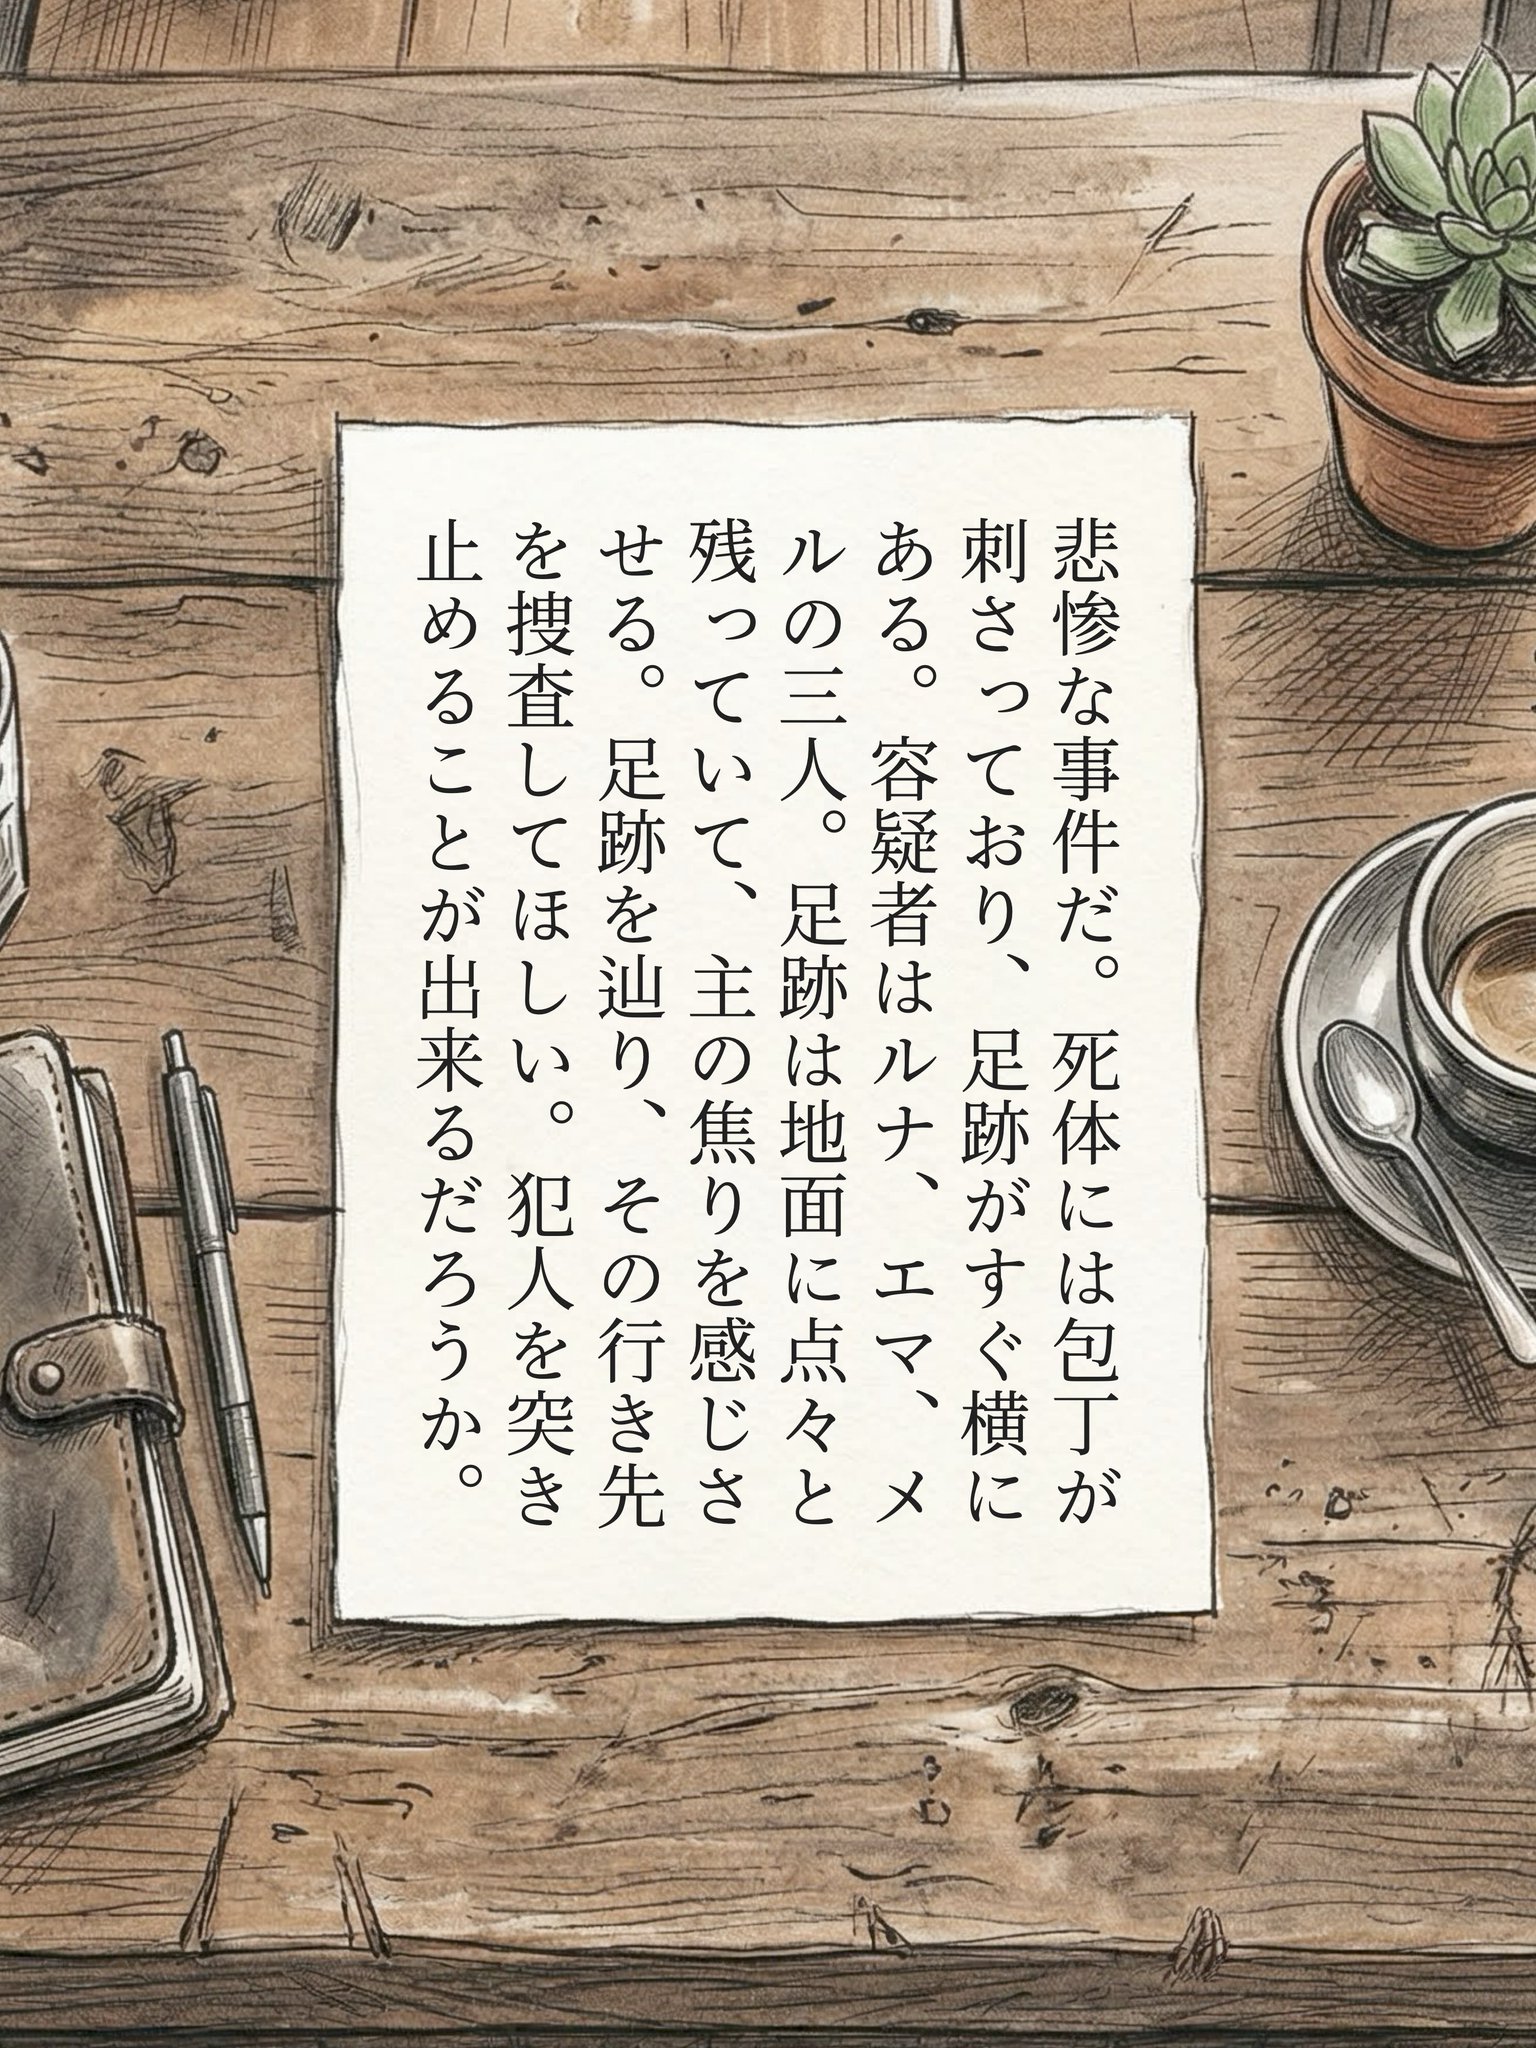 悲惨な事件だ。死体には包丁が
刺さっており、足跡がすぐ横に
ある。容疑者はルナ、エマ、メ
ルの三人。足跡は地面に点々と
残っていて、主の焦りを感じさ
せる。足跡を辿り、その行き先
を捜査してほしい。犯人を突き
止めることが出来るだろうか。